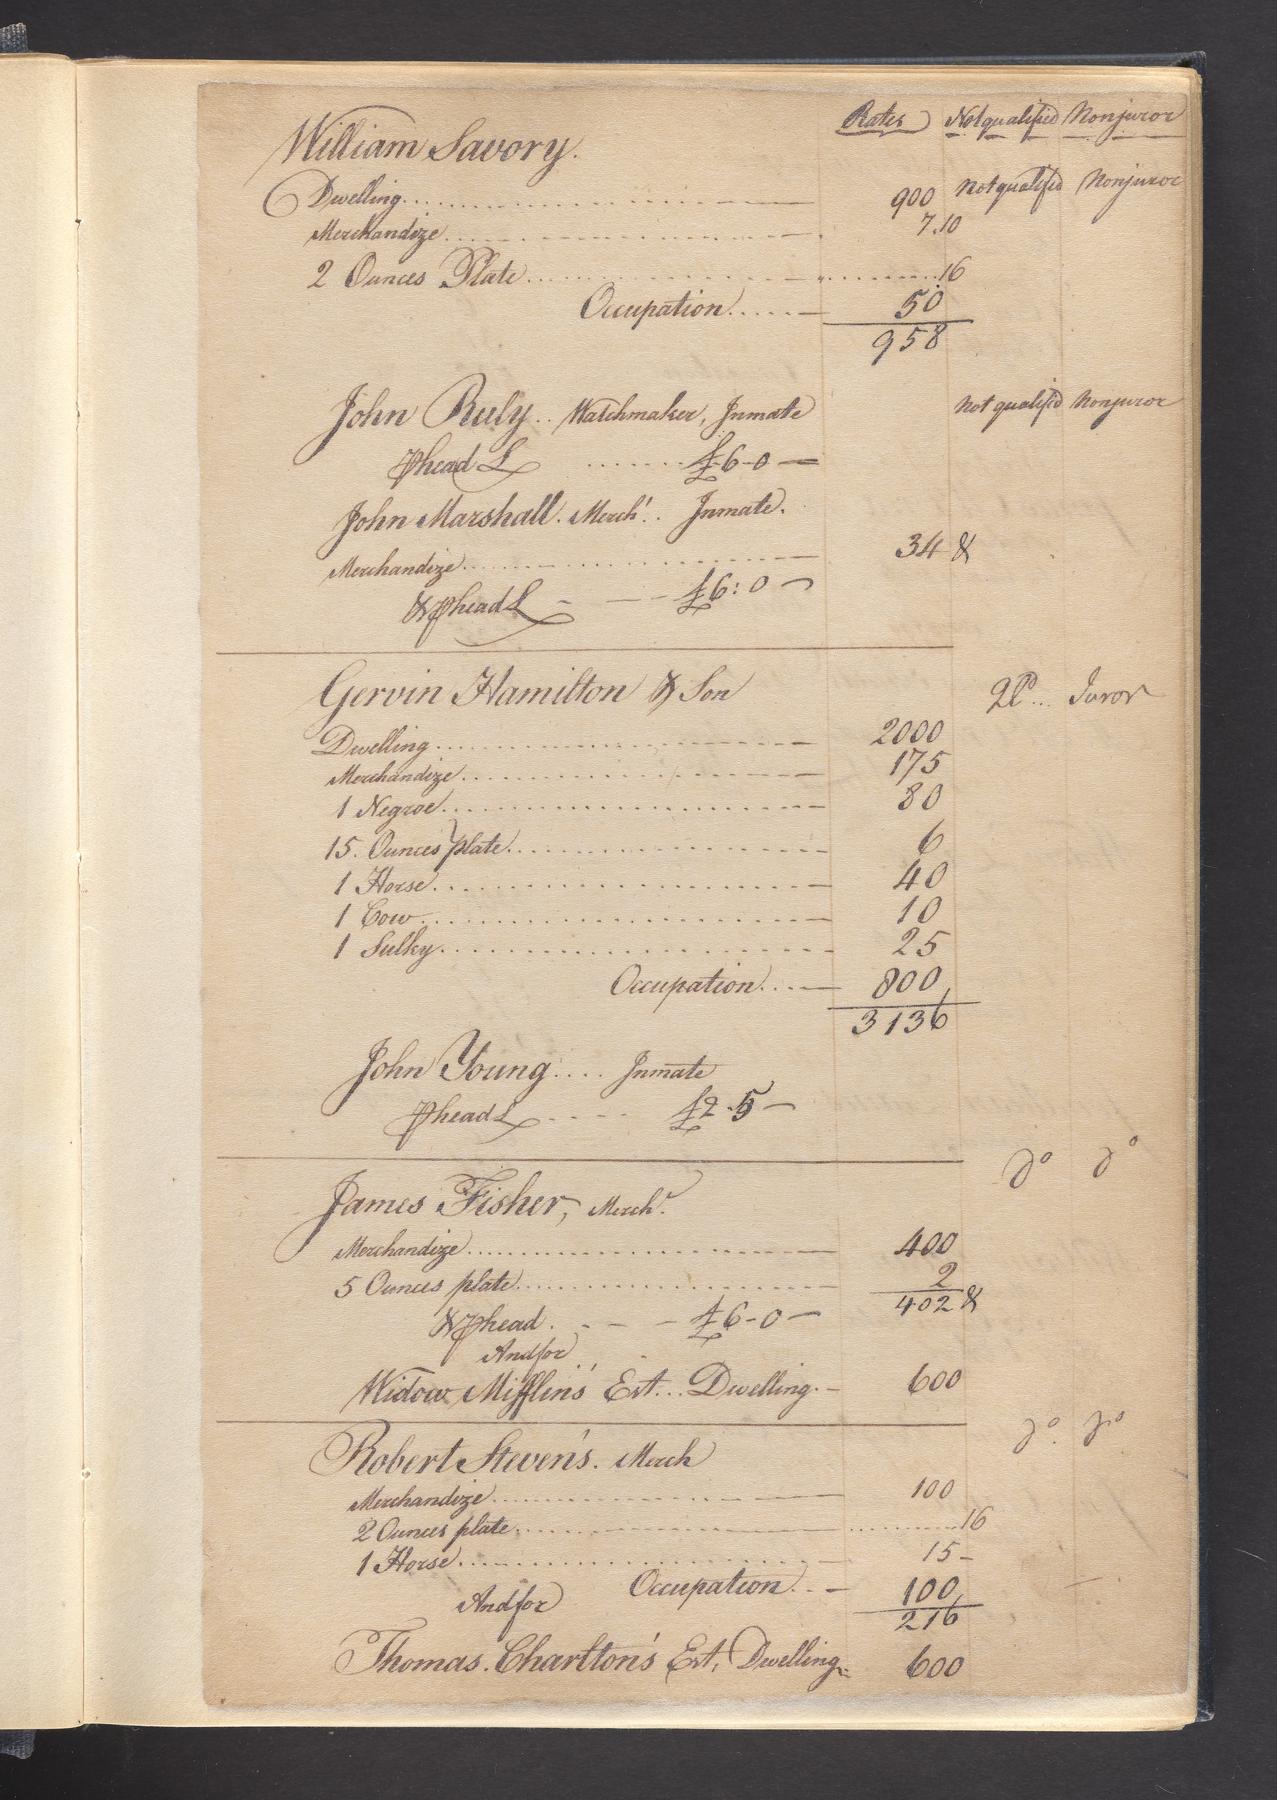 Rates Notqualified Nonjuror
William Savory.
Dwelling 900 Notqualified Nonjuror
Merchandize 7.10
2 Ounces Plate 16
Occupation 50
958
John Ruly Watchmaker, Inmate Not qualified Nonjuror
₱head £6-0
John Marshall. Merch.t Inmate.
Merchandize 34 &
& ₱head £6:0
Gervin Hamilton & Son Juror
Dwelling 2000
Merchandize 175
1 Negroe 80
15. Ounces plate 6
1 Horse 40
1 Cow 10
1 Sulky 25
Occupation 800
3136
John Young Inmate
₱head £2.5
do do
James Fisher, Merch.t
Merchandize 400
5 Ounces plate 2
402 &
& ₱head £6-0
And for
Widow Mifflin's Est. Dwelling 600
do do
Robert Steven's. Merch
Merchandize 100
2 Ounces plate 16
1 Horse 15
Occupation 100
And for 216
Thomas. Charlton's Est, Dwelling 600